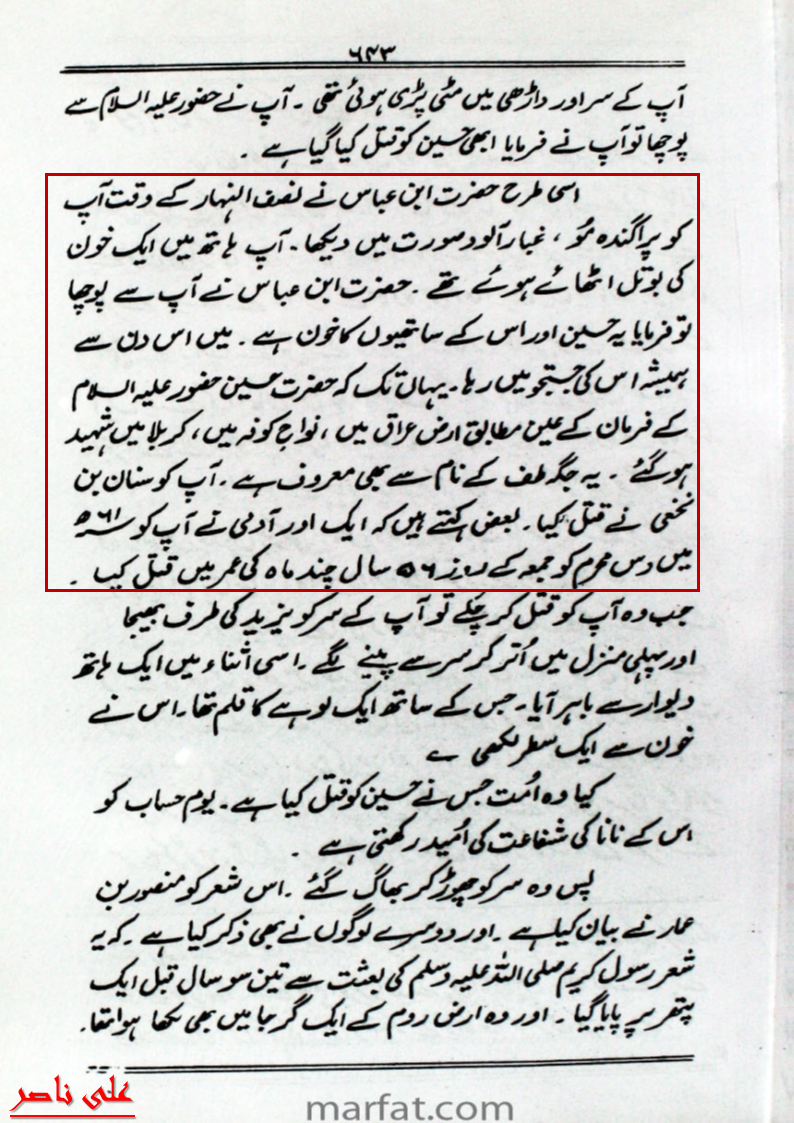 ۶۴۳
آپ کے سر اور داڑھی میں مٹی پڑی ہوئی تھی ۔ آپ نے حضور علیہ السلام سے
پوچھا تو آپ نے فرمایا ابھی حسین کو قتل کیا گیا ہے ۔
اسی طرح حضرت ابن عباس نے نصف النہار کے وقت آپ
کو پراگندہ مُو ، غبار آلود صورت میں دیکھا ۔ آپ ہاتھ میں ایک خون
کی بوتل اٹھائے ہوئے تھے ۔ حضرت ابن عباس نے آپ سے پوچھا
تو فرمایا یہ حسین اور اس کے ساتھیوں کا خون ہے ۔ میں اس دن سے
ہمیشہ اس کی جستجو میں رہا ۔ یہاں تک کہ حضرت حسین حضور علیہ السلام
کے فرمان کے عین مطابق ارض عراق میں ، نواح کوفہ میں ، کربلا میں شہید
ہو گئے ۔ یہ جگہ طف کے نام سے بھی معروف ہے ۔ آپ کو سنان بن
نخعی نے قتل کیا ۔ بعض کہتے ہیں کہ ایک اور آدمی نے آپ کو ۶۱ھ
میں دس محرم کو جمعہ کے روز ۵۶ سال چند ماہ کی عمر میں قتل کیا ۔
جب وہ آپ کو قتل کر چکے تو آپ کے سر کو یزید کی طرف بھیجا
اور پہلی منزل میں اُتر کر سر سے پینے لگے ۔ اسی اثناء میں ایک ہاتھ
دیوار سے باہر آیا ۔ جس کے ساتھ ایک لوہے کا قلم تھا ۔ اس نے
خون سے ایک سطر لکھی ے
کیا وہ اُمت جس نے حسین کو قتل کیا ہے ۔ یوم حساب کو
اس کے نانا کی شفاعت کی اُمید رکھتی ہے ۔
پس وہ سر کو چھوڑ کر بھاگ گئے ۔ اس شعر کو منصور بن
عمار نے بیان کیا ہے ۔ اور دوسرے لوگوں نے بھی ذکر کیا ہے ۔ کہ یہ
شعر رسول کریم صلی اللہ علیہ وسلم کی بعثت سے تین سو سال قبل ایک
پتھر پر پایا گیا ۔ اور وہ ارض روم کے ایک گرجا میں بھی لکھا ہوا تھا ۔
علی ناصر
marfat.com